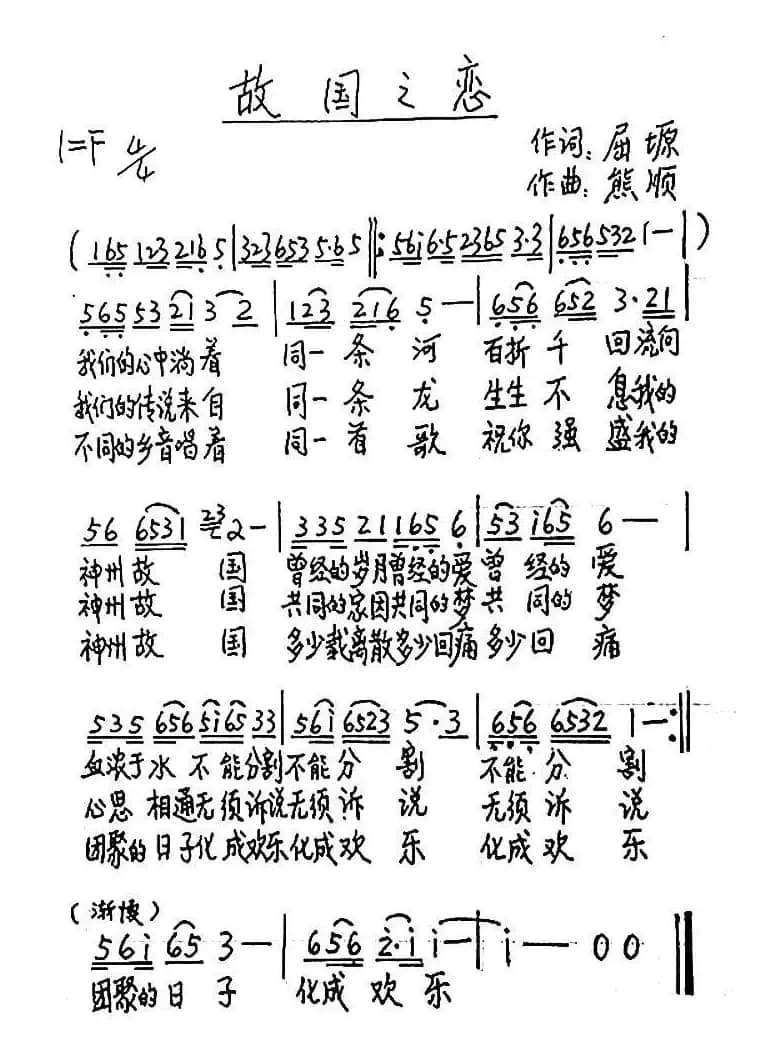 故国之恋
1=F 4/4
作词：屈塬
作曲：熊顺
(165 123 2165|323653 5·65‖:56i6·5 2365 3·3|656532 1—|)
565 53 21 3 2|123 216 5—|656 652 3·21|
我们的心中淌着 同一条河 百折千回流向
我们的传说来自 同一条龙 生生不息我的
不同的乡音唱着 同一首歌 祝你强盛我的
56 6531 23 2—|335 21 165 6|53 i65 6—|
神州故国 曾经的岁月曾经的爱曾经的爱
神州故国 共同的家因共同的梦共同的梦
神州故国 多少载离散多少回痛多少回痛
535 656 5i65 33|56i 6523 5·3|656 6532 1—:‖
血浓于水不能分割不能分割 不能分割
心思相通无须诉说无须诉说 无须诉说
团聚的日子化成欢乐化成欢乐 化成欢乐
(渐慢)
56i 65 3—|656 2·i i—|i—00‖
团聚的日子 化成欢乐